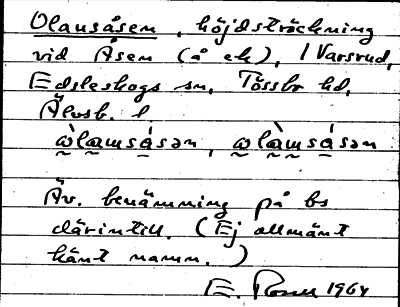 Olausåsen, höjdsträckning
vid Åsen (å ek), 1 Varsrud,
Edsleskogs sn, Tössbo hd,
Älvsb. l
ὼlamsásən, ω̰làmsásən
Äv. benämning på bs
därintill. (Ej allmänt
känt namn.)
E. 1964